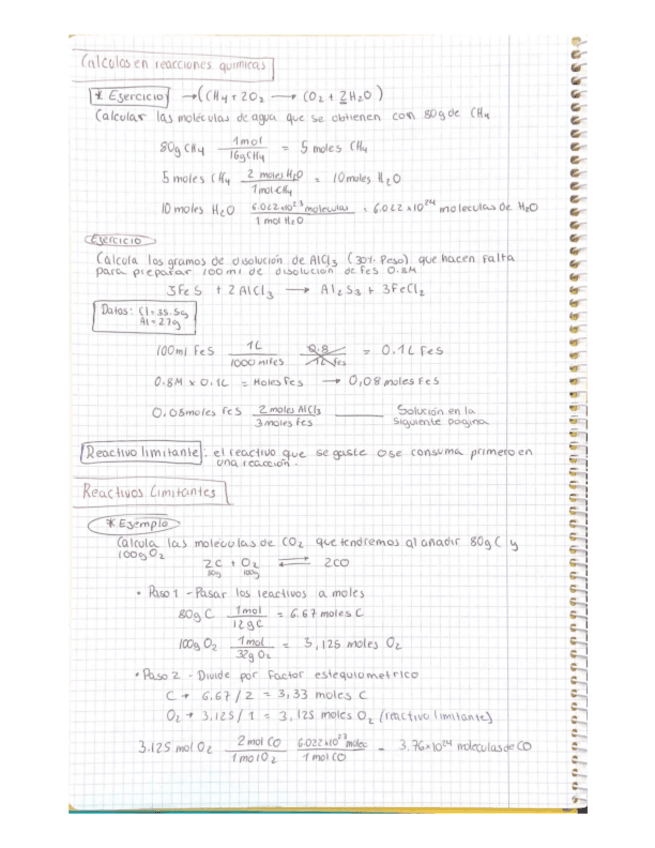 Calculos en reacciones quimicas
* Ejercicio → (CH4 + 2O2 → CO2 + 2H2O)
Calcular las moléculas de agua que se obtienen con 80g de CH4
80g CH4 1mol / 16g CH4 = 5 moles CH4
5 moles CH4 2 moles H2O / 1 mol CH4 = 10 moles H2O
10 moles H2O 6.022x10^23 moleculas / 1 mol H2O = 6.022x10^24 moleculas de H2O
Ejercicio
Calcula los gramos de disolución de AlCl3 (30% Peso) que hacen falta
para preparar 100ml de disolución de FeS 0.8M
3FeS + 2AlCl3 → Al2S3 + 3FeCl2
Datos: Cl = 35.5g
Al = 27g
100ml FeS 1L / 1000 ml FeS 0.8 / 1L FeS = 0.1L FeS
0.8M x 0.1L = Moles FeS → 0,08 moles FeS
0.08moles FeS 2 moles AlCl3 / 3 moles FeS Solución en la
siguiente pagina
Reactivo limitante: el reactivo que se gaste o se consuma primero en
una reacción.
Reactivos Limitantes
* Ejemplo
Calcula las moleculas de CO2 que tendremos al añadir 80g C y
100g O2
2C + O2 ⇄ 2CO
80g 100g
• Paso 1 - Pasar los reactivos a moles
80g C 1mol / 12g C = 6.67 moles C
100g O2 1mol / 32g O2 = 3,125 moles O2
• Paso 2 - Divide por factor estequiometrico
C → 6.67/2 = 3,33 moles C
O2 → 3.125/1 = 3,125 moles O2 (reactivo limitante)
3.125 mol O2 2 mol CO / 1 mol O2 6.022x10^23 molec / 1 mol CO = 3.76x10^24 moleculas de CO